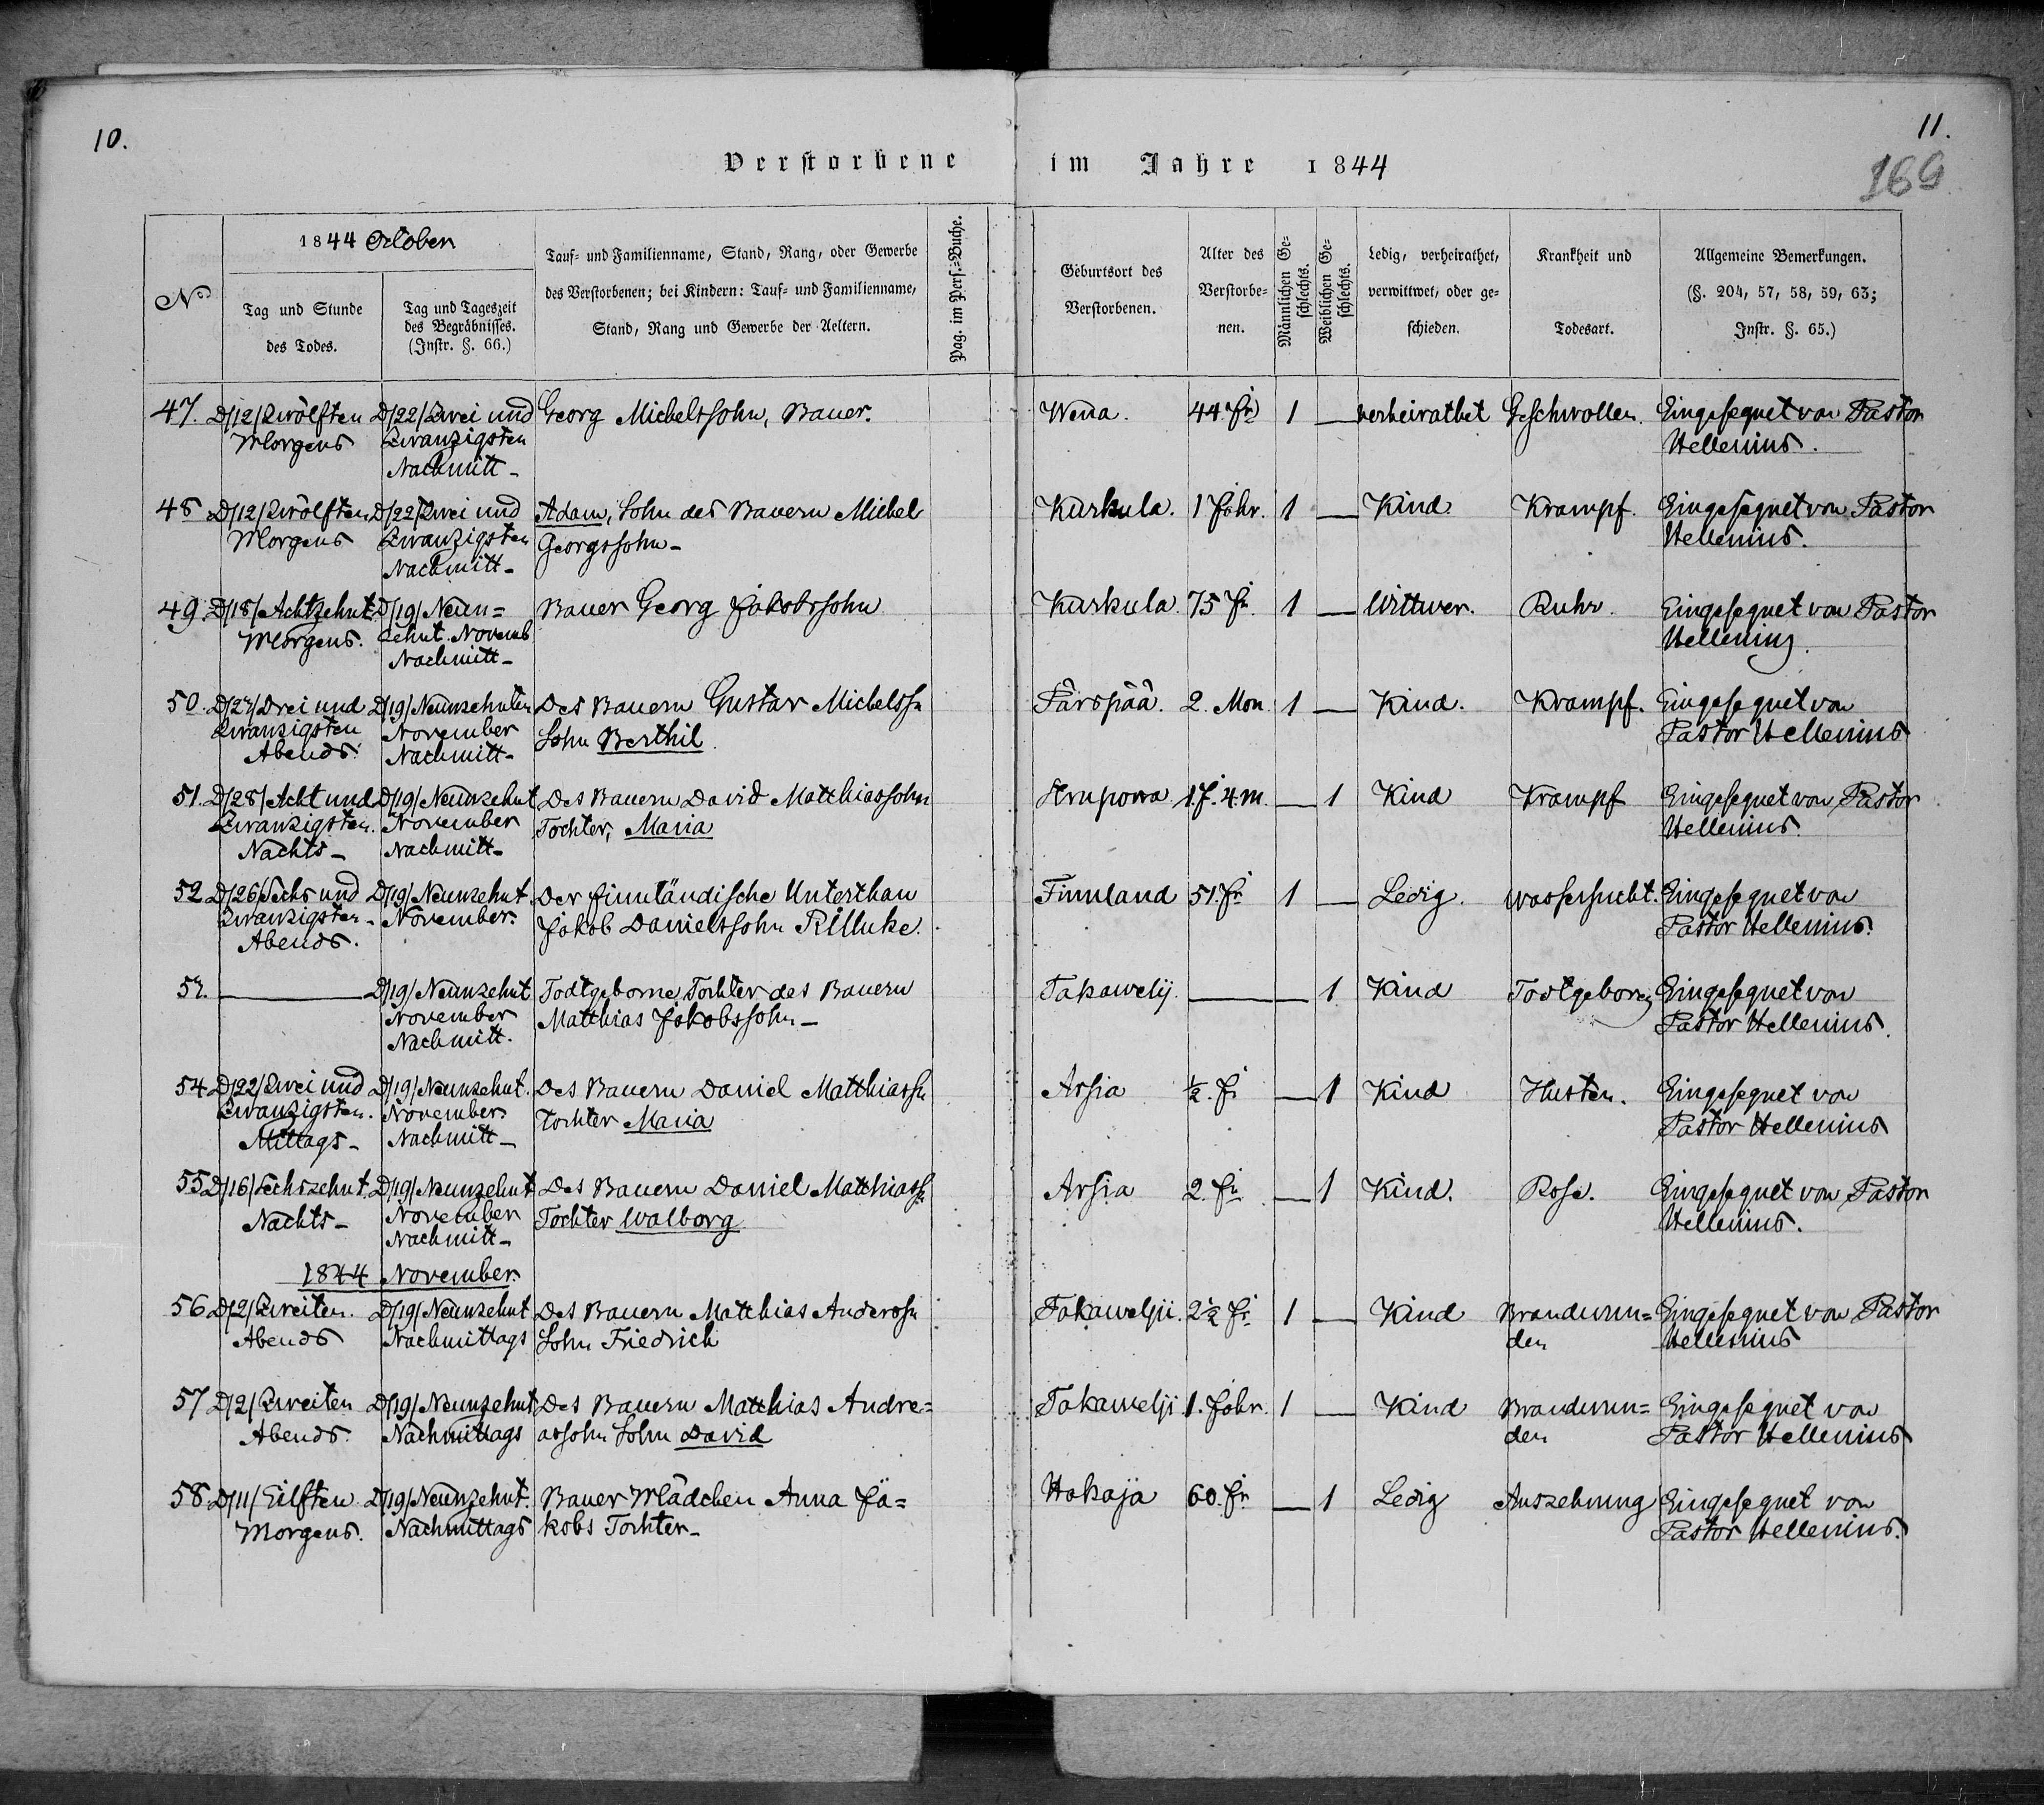 10.
11.
169
Verstorbene im Jahre 1844
No
1844 October
Tag und Stunde
des Todes.
Tag und Tageszeit
des Begräbnisses.
(Instr. §. 66.)
Tauf- und Familienname, Stand, Rang, oder Gewerbe
des Verstorbenen; bei Kindern: Tauf- und Familienname,
Stand, Rang und Gewerbe der Aeltern.
Pag. im Pers.-Buche.
Geburtsort des
Verstorbenen.
Alter des
Verstorbe-
nen.
Männlichen Ge-
schlechts.
Weiblichen Ge-
schlechts.
Ledig, verheirathet,
verwittwet, oder ge-
schieden.
Krankheit und
Todesart.
Allgemeine Bemerkungen.
(§. 204, 57, 58, 59, 63;
Instr. §. 65.)
47. D/12/ Zwölften D/22/ Zwei und Georg Michelssohn, Bauer. Wena. 44 Jr 1 — verheirathet Geschwollen. Eingesegnet von Pastor
Morgens Zwanzigsten Hellenius.
Nachmitt-
48 D/12/ Zwölften D/22/ Zwei und Adam, Sohn des Bauern Michel Kurkula. 1 Jahr. 1 — Kind. Krampf. Eingesegnet von Pastor
Morgens Zwanzigsten Georgssohn- Hellenius.
Nachmitt-
49. D/18/ Achtzehnt D/19/ Neun= Bauer Georg Jakobssohn Kurkula. 75 Jr. 1 — Wittwer. Ruhr. Eingesegnet von Pastor
Morgens. zehnt. Novemb Hellenius.
Nachmitt-
50. D/23/ Drei und D/19/ Neunzehnten Des Bauern Gustav Michelssn 2. Mon. 1 — Kind. Krampf. Eingesegnet von
Zwanzigsten November Sohn Berthil. Pastor Hellenius
Abends. Nachmitt-
51. D/28/ Acht und D/19/ Neunzehnt Des Bauern David Matthiassohn 1 J. 4. M. — 1 Kind Krampf Eingesegnet von Pastor
Zwanzigsten. November Tochter, Maria Hellenius.
Nachts- Nachmitt-
52 D/26/ Sechs und D/19/ Neunzehnt. Der finnländische Unterthan Finnland 51. Jr 1 — Ledig. Wassersucht. Eingesegnet von
Zwanzigsten- November. Jakob Danielssohn Pastor Hellenius.
Abends.
53. — D/19/ Neunzehnt Todtgeborne Tochter des Bauern Takawelij. — — 1 Kind Todtgeboren Eingesegnet von
November Matthias Jakobssohn- Pastor Hellenius.
Nachmitt.
54 D/22/ Zwei und D/19/ Neunzehnt. Des Bauern Daniel Matthiassn Arsia ½. J. — 1 Kind Husten. Eingesegnet von
Zwanzigsten. November Tochter Maria Pastor Hellenius
Mittags- Nachmitt-
55 D/16/ Sechszehnt. D/19/ Neunzehnt Des Bauern Daniel Matthiassn Arsia 2. Jr — 1 Kind. Rose. Eingesegnet von Pastor
Nachts- November Tochter Walborg. Hellenius.
Nachmitt-
1844 November.
56 D/2/ Zweiten. D/19/ Neunzehnt Des Bauern Matthias Takawelji. 2½ Jr 1 — Kind Brandwun= Eingesegnet von Pastor
Abends Nachmittags Sohn Friedrich den Hellenius
57 D/2/ Zweiten D/19/ Neunzehnt Des Bauern Matthias Andre= Takawelji 1. Jahr. 1 — Kind Brandwun= Eingesegnet von
Abends. Nachmittags assohn Sohn David den Pastor Hellenius
58 D/11/ Eilften D/19/ Neunzehnt. Bauer Mädchen Anna Ja= Hakaja 60. Jr — 1 Ledig Auszehrung Eingesegnet von
Morgens. Nachmittags kobs Tochter- Pastor Hellenius.